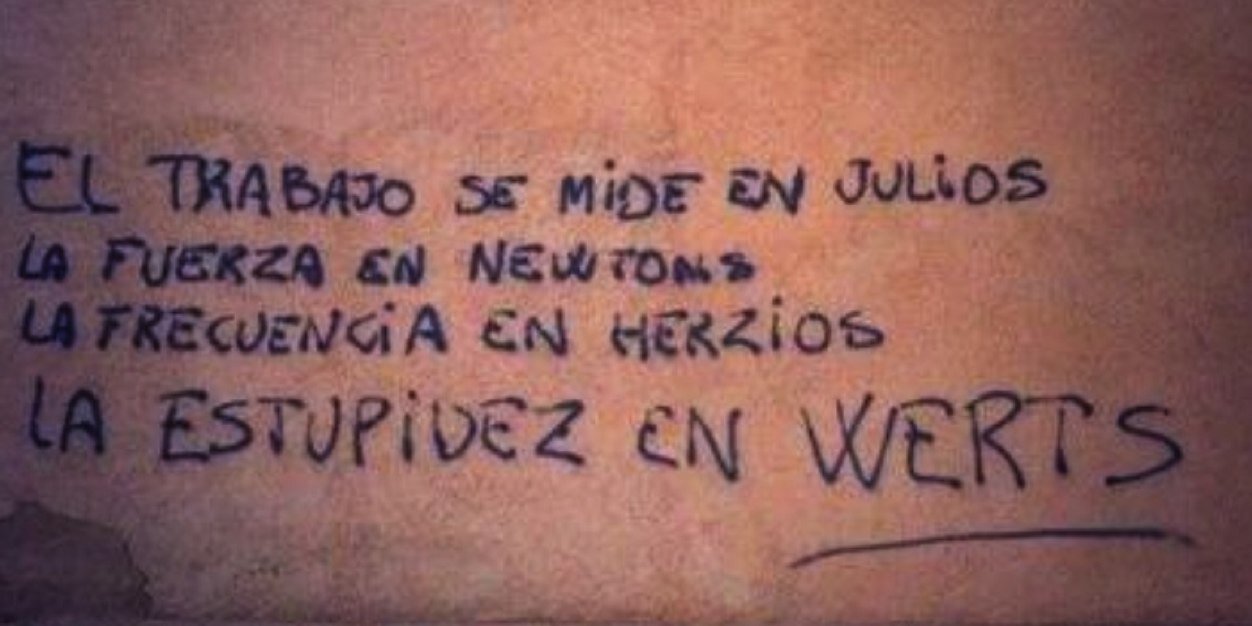 EL TRABAJO SE MiDE EN JULiOS
LA FUERZA EN NEWTONS
LA FRECUENCiA EN HERZiOS
LA ESTUPiDEZ EN WERTS